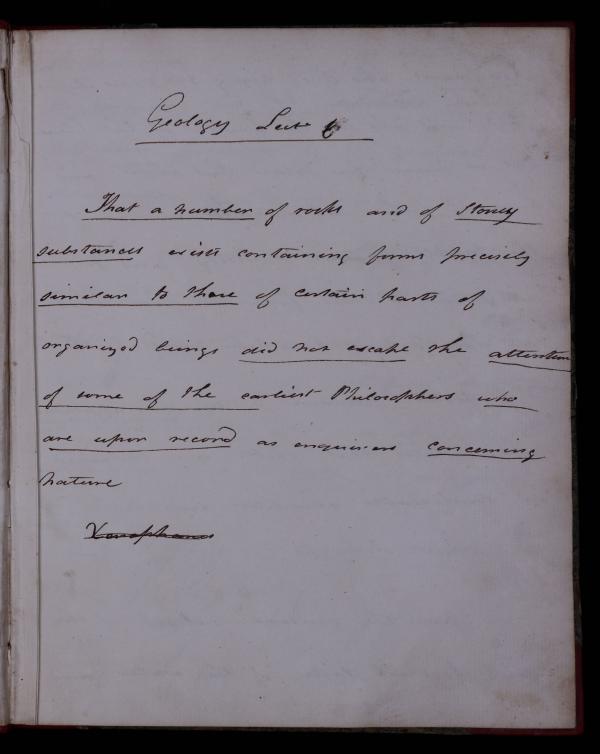 Geology Lect 6
That a number of rocks and of stoney
substances exists containing forms precisely
similar to those of certain parts of
organized beings did not escape the attention
of some of the earliest Philosophers who
are upon record as enquirers concerning
nature
Xenophanes